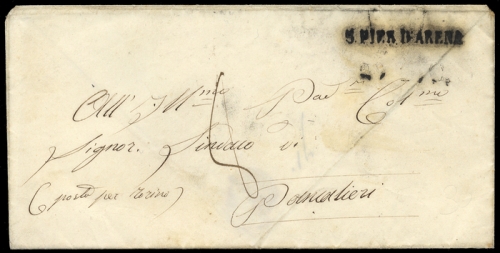 S. PIER D'ARENA
All' Ill.mo Pad.e Col.mo
Signor. Sindaco di
(posta per Torino) Pancalieri